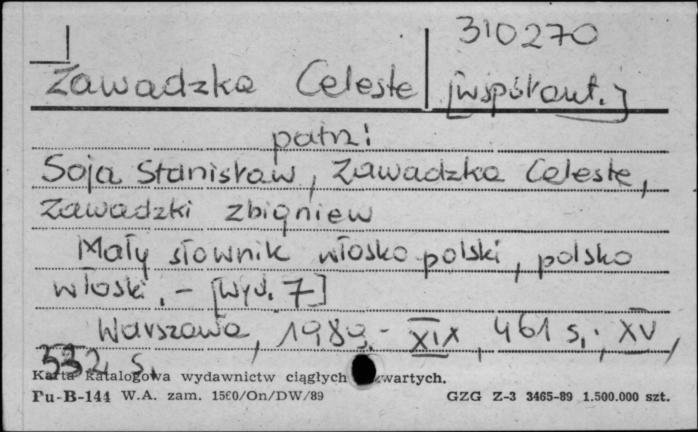 310270
Zawadzka Celeste [współaut.]
patrz:
Soja Stanisław, Zawadzka Celeste,
Zawadzki Zbigniew
Mały słownik włosko polski, polsko
włoski. – [Wyd. 7]
Warszawa, 1989. - XIX, 461 s., XV,
532 s.
Karta katalogowa wydawnictw ciągłych zwartych.
Pu-B-144 W.A. zam. 1560/On/DW/89 GZG Z-3 3465-89 1.500.000 szt.